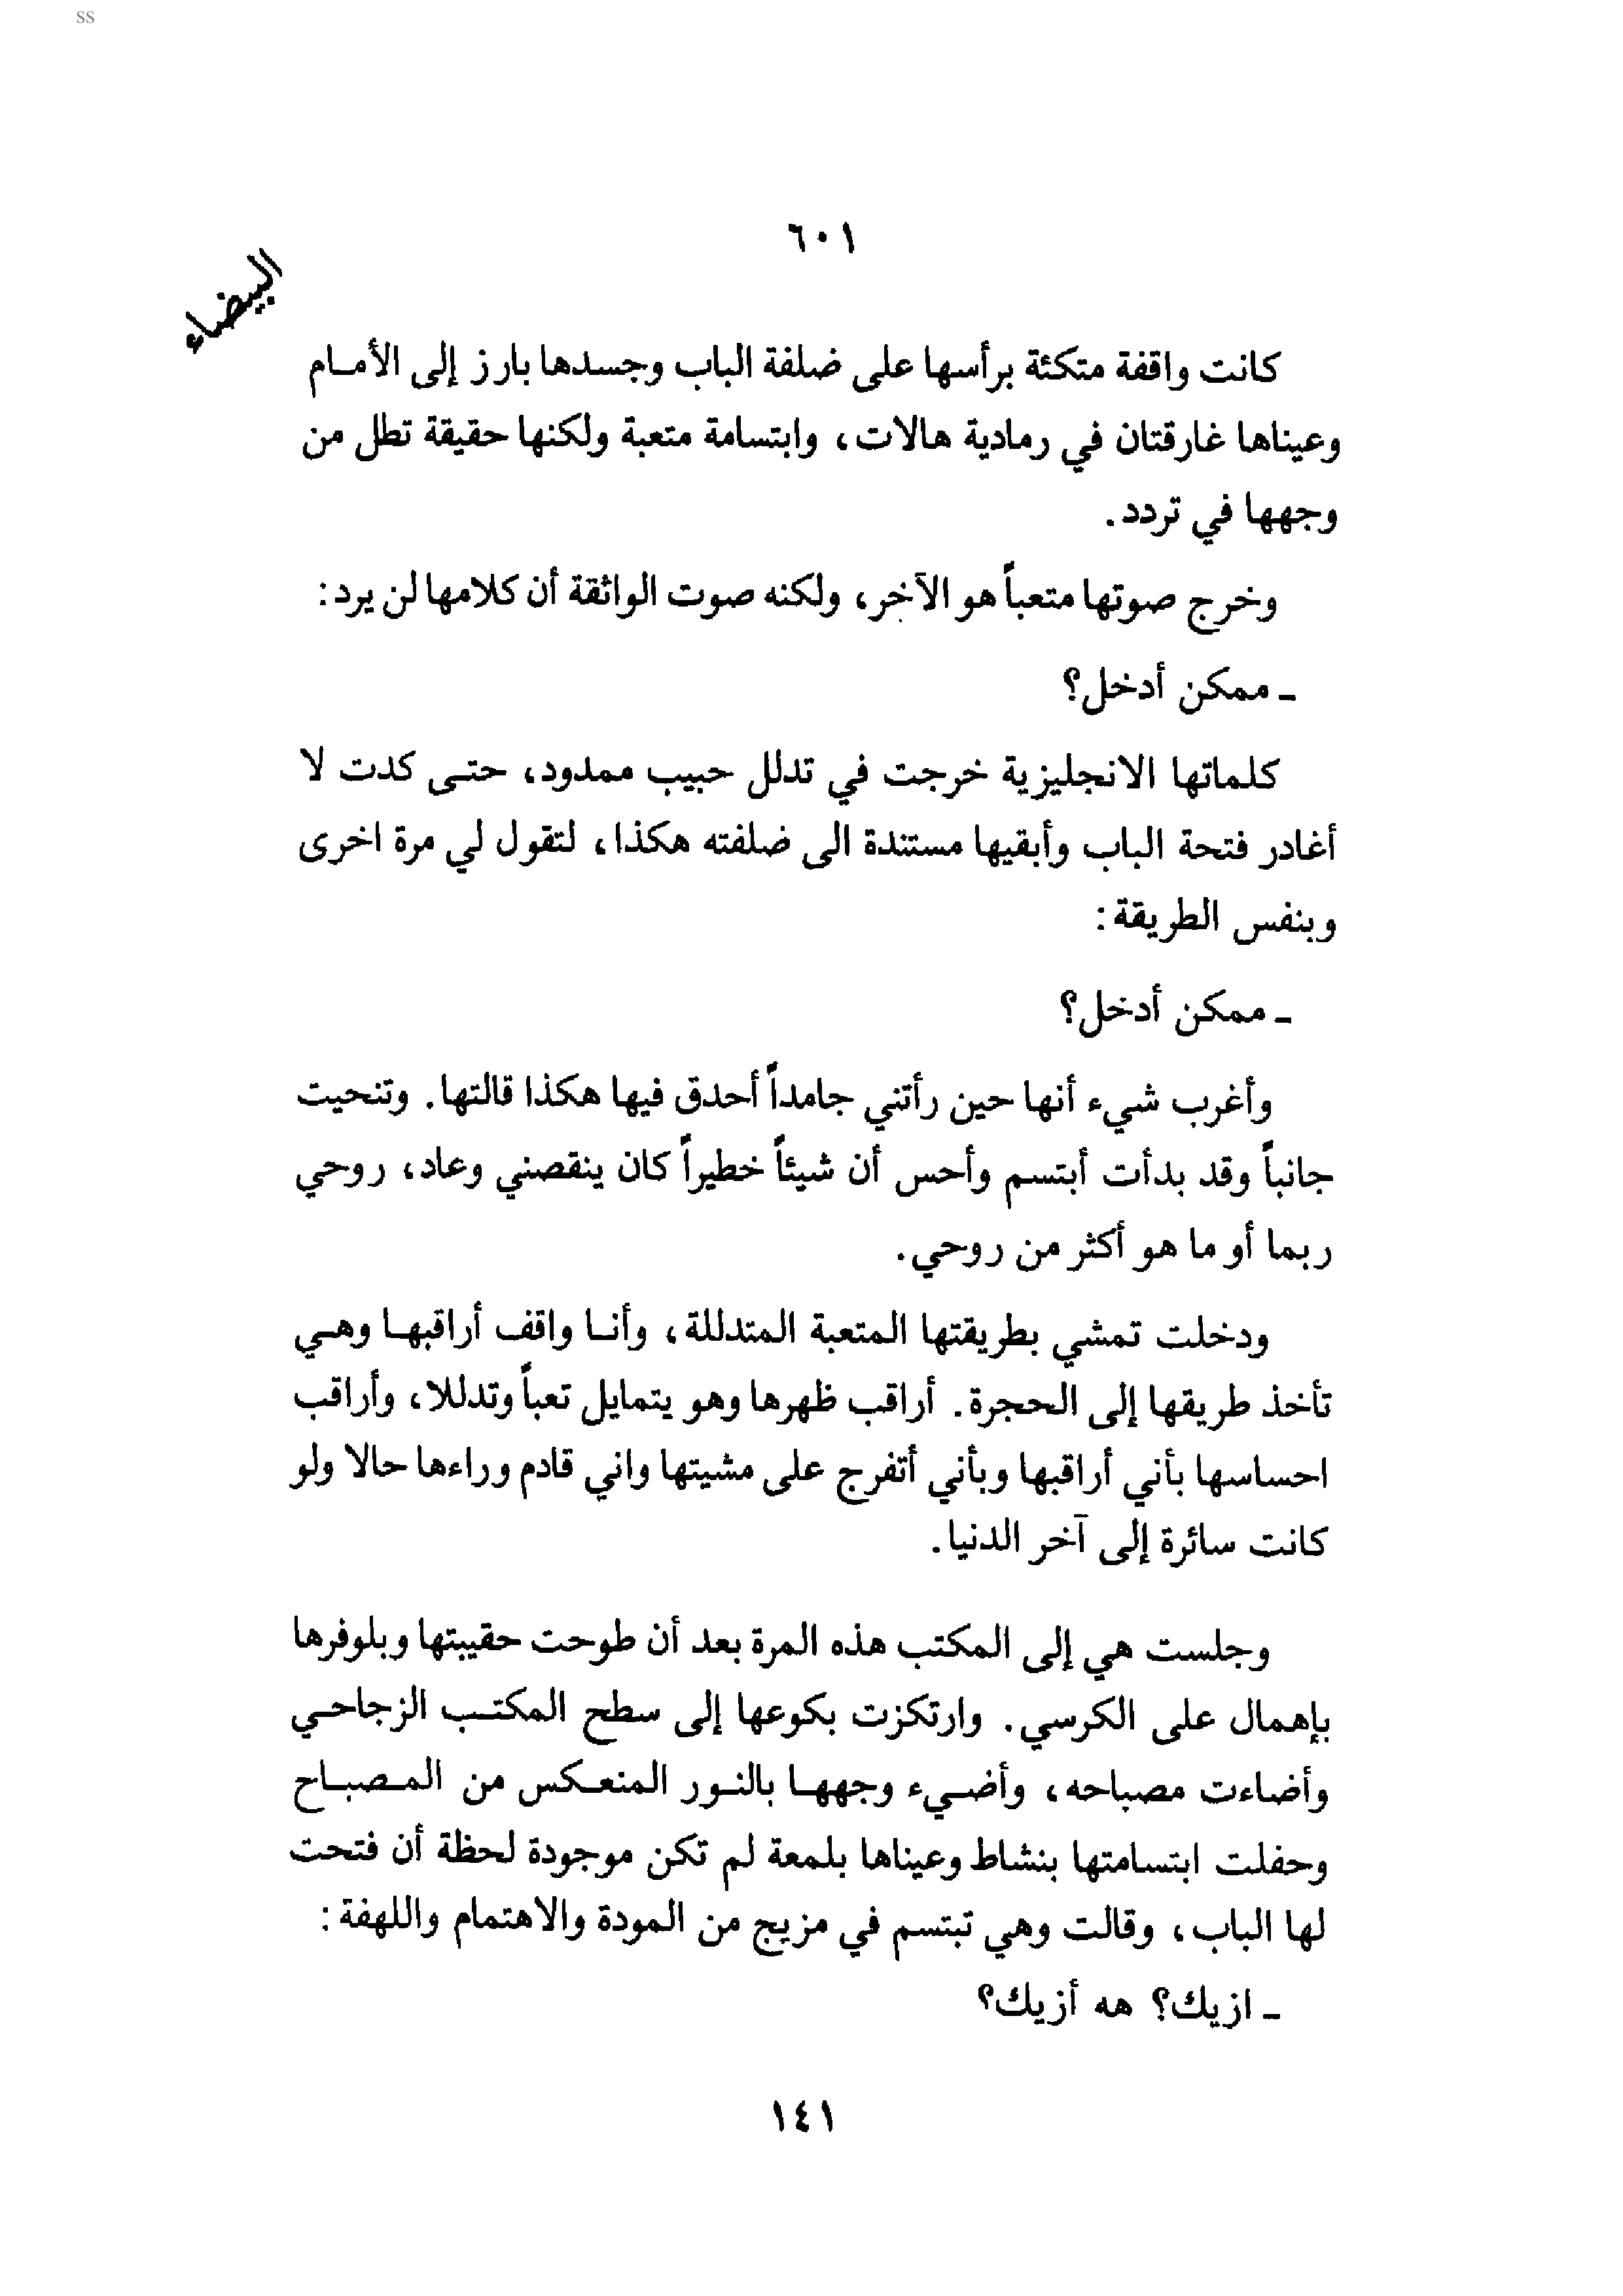 ss
٦٠١
البيضاء
كانت واقفة متكئة برأسها على ضلفة الباب وجسدها بارز إلى الأمام
وعيناها غارقتان في رمادية هالات، وابتسامة متعبة ولكنها حقيقة تطل من
وجهها في تردد.
وخرج صوتها متعباً هو الآخر، ولكنه صوت الواثقة أن كلامها لن يرد:
ـ ممكن أدخل؟
كلماتها الانجليزية خرجت في تدلل حبيب ممدود، حتى كدت لا
أغادر فتحة الباب وأبقيها مستندة الى ضلفته هكذا، لتقول لي مرة اخرى
وبنفس الطريقة:
ـ ممكن أدخل؟
وأغرب شيء أنها حين رأتني جامداً أحدق فيها هكذا قالتها. وتنحيت
جانباً وقد بدأت أبتسم وأحس أن شيئاً خطيراً كان ينقصني وعاد، روحي
ربما أو ما هو أكثر من روحي.
ودخلت تمشي بطريقتها المتعبة المتدللة، وأنا واقف أراقبها وهي
تأخذ طريقها إلى الحجرة. أراقب ظهرها وهو يتمايل تعباً وتدللا، وأراقب
احساسها بأني أراقبها وبأني أتفرج على مشيتها واني قادم وراءها حالا ولو
كانت سائرة إلى آخر الدنيا.
وجلست هي إلى المكتب هذه المرة بعد أن طوحت حقيبتها وبلوفرها
بإهمال على الكرسي. وارتكزت بكوعها إلى سطح المكتب الزجاحي
وأضاءت مصباحه، وأضيء وجهها بالنور المنعكس من المصباح
وحفلت ابتسامتها بنشاط وعيناها بلمعة لم تكن موجودة لحظة أن فتحت
لها الباب، وقالت وهي تبتسم في مزيج من المودة والاهتمام واللهفة:
ـ ازيك؟ هه أزيك؟
١٤١